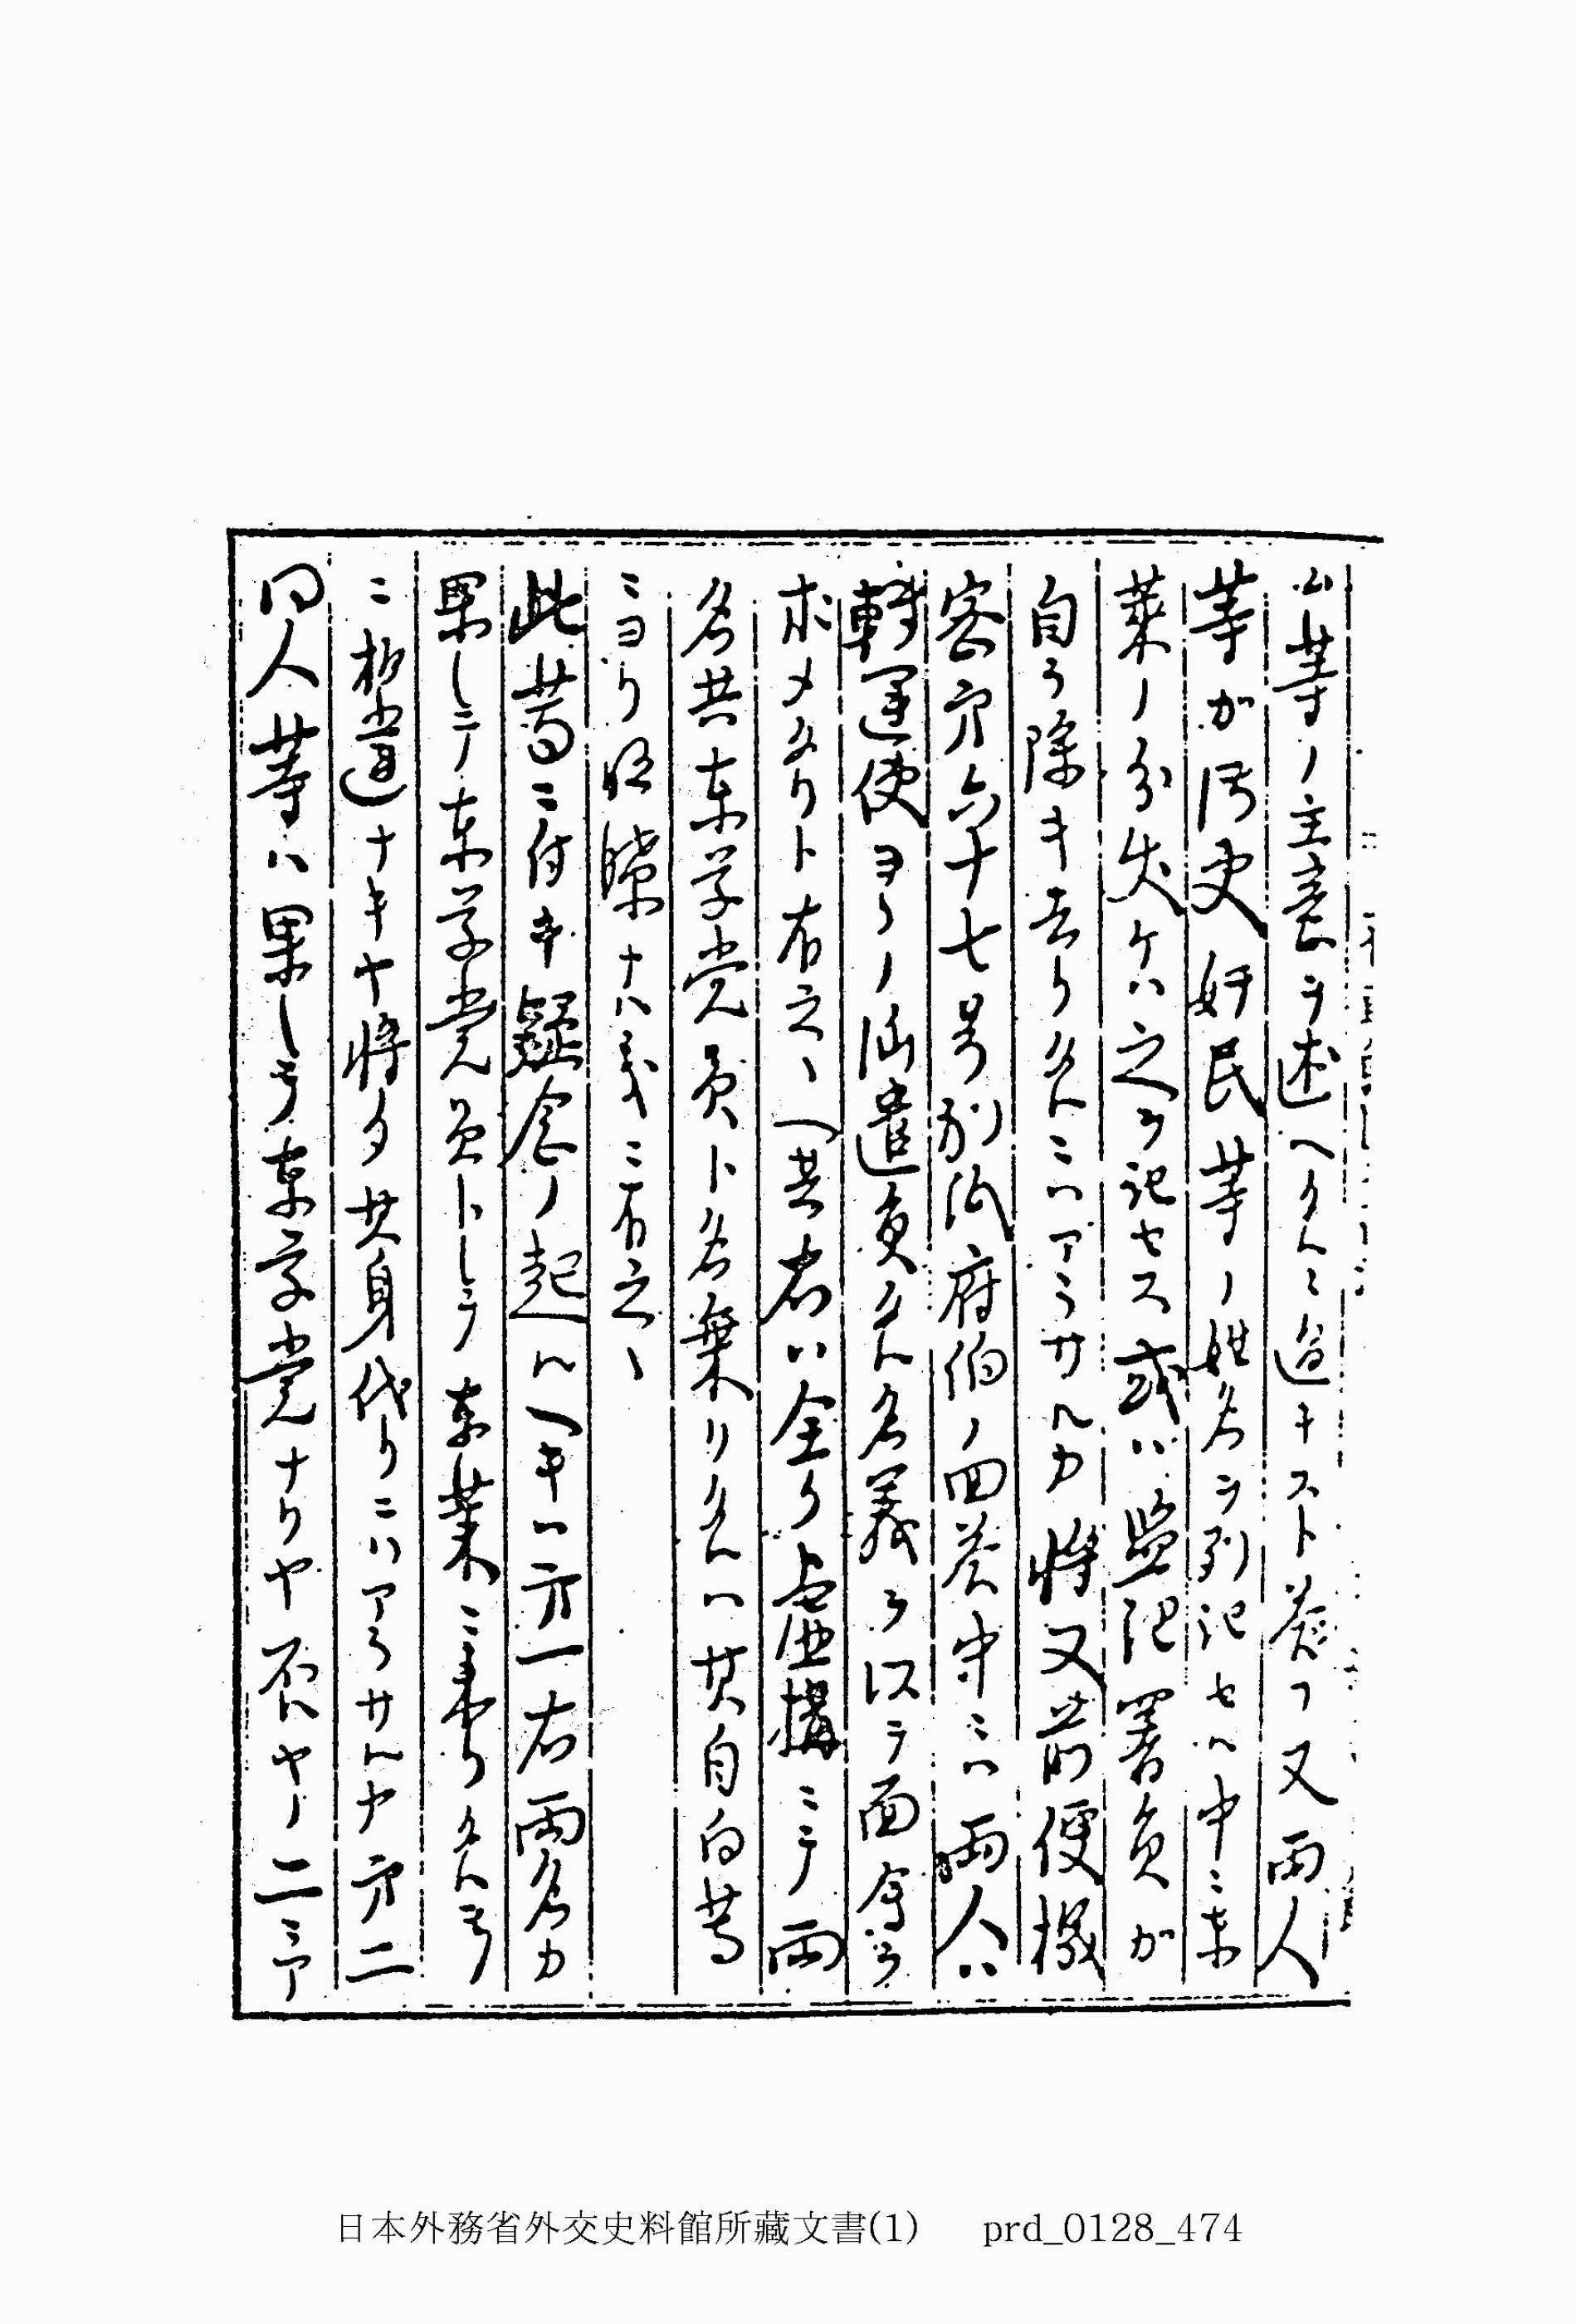 公等ノ主意ヲ述ヘタルニ過キスト答フ又両人
等ガ汚吏奸民等ノ姓名ヲ列記セハ中ニ東
萊ノ分失ケハ之ヲ記セス或ハ監記署員ガ
自ラ除キ去リタルニハアラサルカ将又前便機
密第六十七号別紙府伯ノ回答中ニハ両人ハ
轉運使ヨリノ派遣員タル名義ヲ以テ面会ヲ
求メタリト有之、ヘ共右ハ全ク虚構ニテ両
名共東学党員ト名乗リタルハ其自白書
ニヨリ明瞭ナル義ニ有之、
此書ニ付キ疑念ノ起ルヘキハ第一右両名カ
果シテ東学党員トシテ東萊ニ来リタルヲ
ニ相違ナキヤ将タ其身代リニハアラサルヤ第二
同人等ハ果シテ東学党ナリヤ否ヤノ二ニア
日本外務省外交史料館所藏文書(1) prd_0128_474